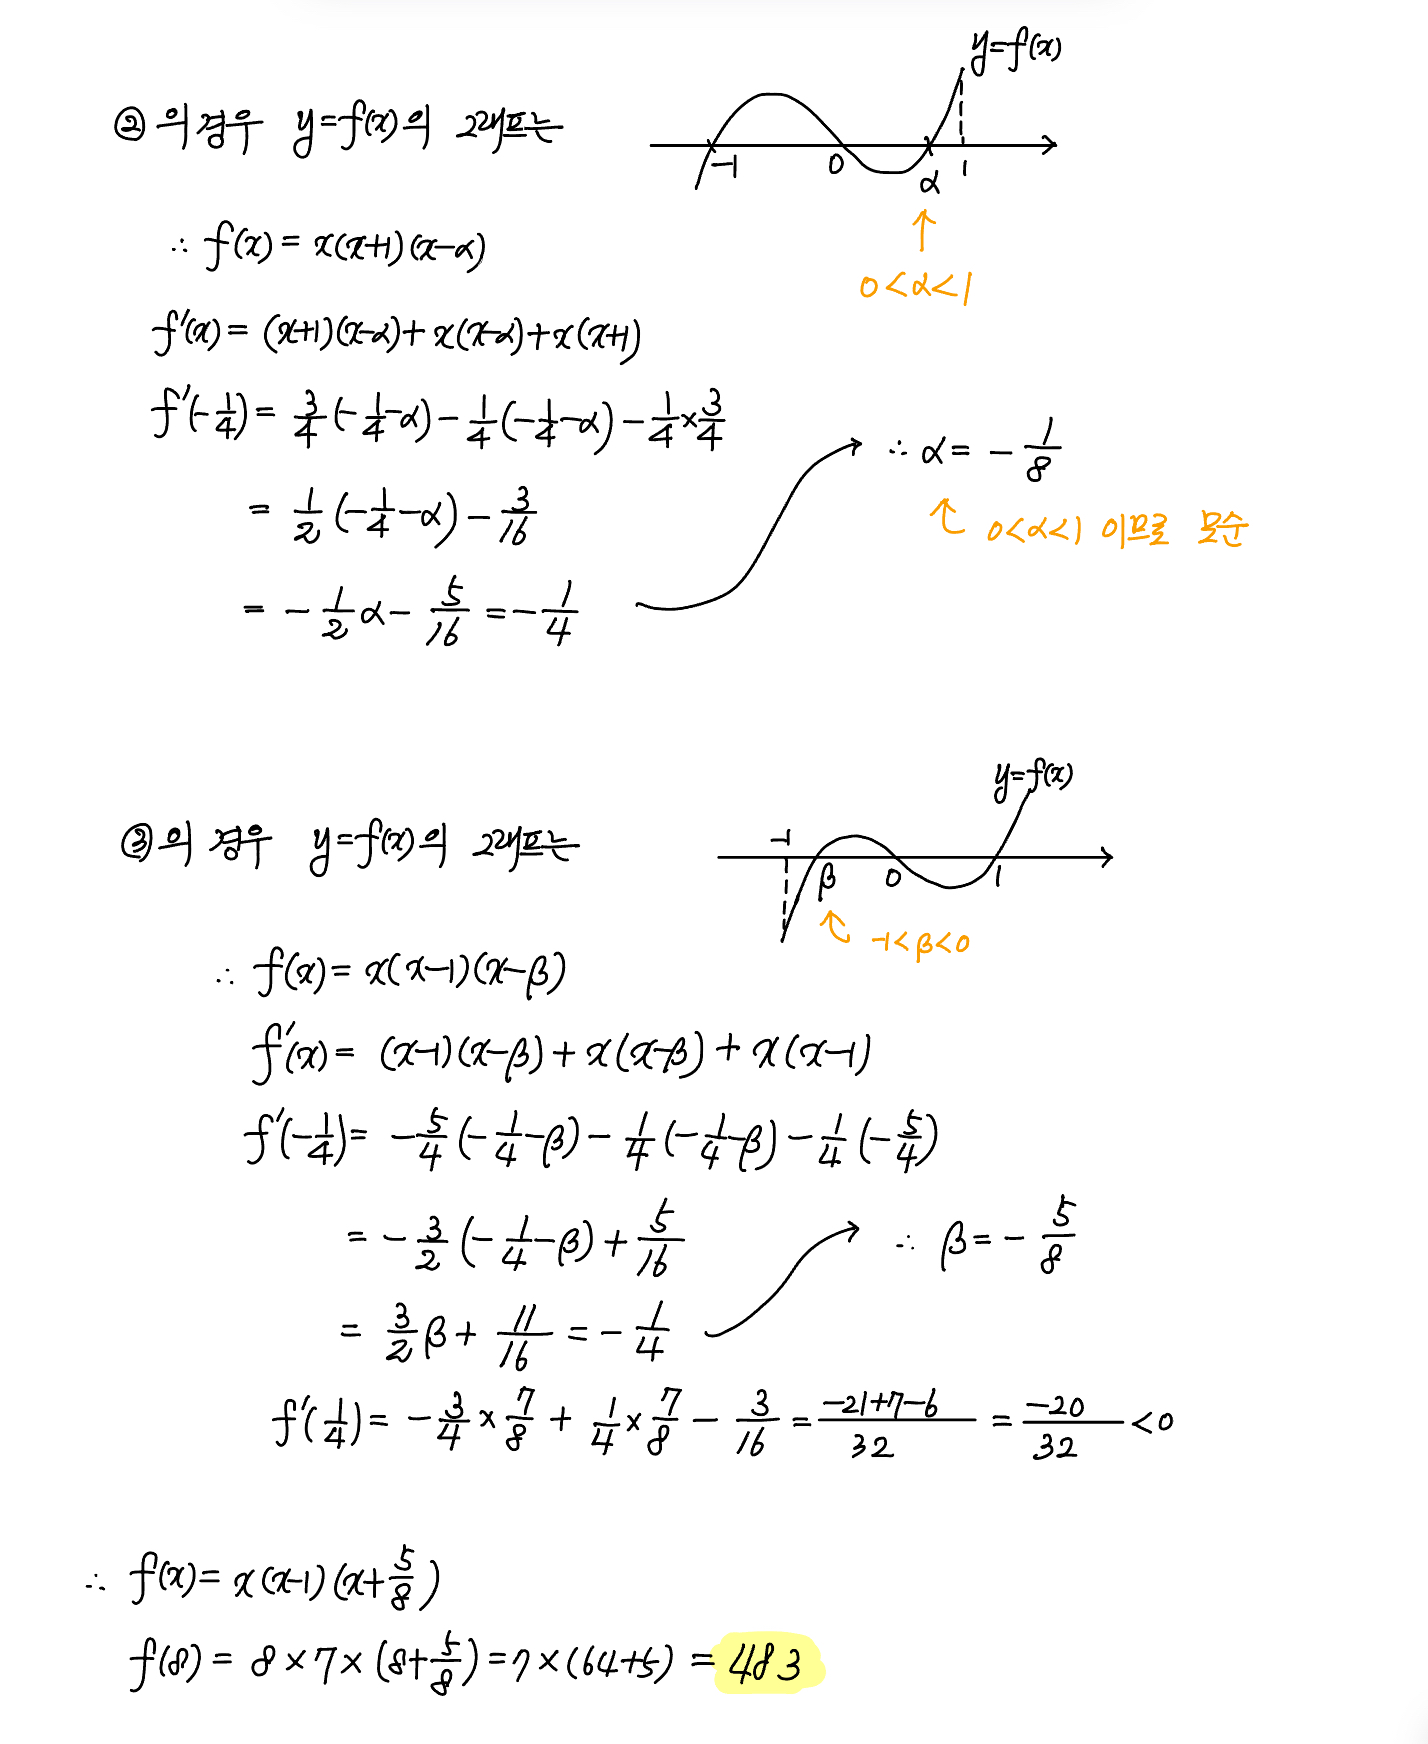 y=f(x)
②의 경우 y=f(x)의 그래프는
-1 0 α 1
0<α<1
∴ f(x) = x(x+1)(x-α)
f'(x) = (x+1)(x-α)+x(x-α)+x(x+1)
f'(-1/4) = 3/4(-1/4-α) - 1/4(-1/4-α) - 1/4×3/4
∴ α = -1/8
= 1/2(-1/4-α) - 3/16
0<α<1 이므로 모순
= -1/2α - 5/16 = -1/4
y=f(x)
③의 경우 y=f(x)의 그래프는
-1 β 0 1
-1<β<0
∴ f(x) = x(x-1)(x-β)
f'(x) = (x-1)(x-β) + x(x-β) + x(x-1)
f'(-1/4) = -5/4(-1/4-β) - 1/4(-1/4-β) - 1/4(-5/4)
= -3/2(-1/4-β) + 5/16
∴ β = -5/8
= 3/2β + 11/16 = -1/4
f'(1/4) = -3/4 × 7/8 + 1/4 × 7/8 - 3/16 = (-21+7-6)/32 = -20/32 < 0
∴ f(x) = x(x-1)(x+5/8)
f(8) = 8×7×(8+5/8) = 7×(64+5) = 483